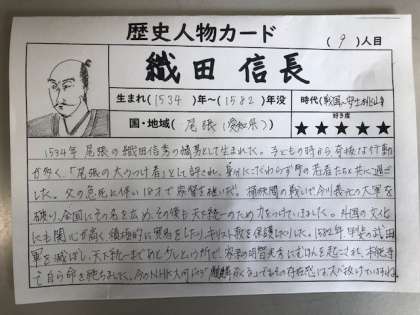 歴史人物カード
(9)人目
織田 信長
生まれ(1534)年〜(1582)年没
時代(戦国〜安土桃山)
国・地域(尾張(愛知県))
好き度
★★★★★
1534年 尾張の織田信秀の嫡男として生まれた。子どもの時から奇抜な行動
が多く、「尾張の大うつけ者」とも評され、身分にこだわらず町の若者たちと共に過ご
した。父の急死に伴い18才で家督を継いだ。桶狭間の戦いで今川義元の大軍を
破り、全国にその名を広め、その後も天下統一のため力をつけていきました。外国の文化
にも関心が高く、積極的に貿易をしたり、キリスト教を保護したりした。1582年 甲斐の武田
軍を滅ぼし、天下統一まであと少しという所で、家臣の明智光秀にむほんを起こされ、本能寺
で自ら命を絶ちました。今のNHK大河ドラマ「麒麟がくる」でもその存在感は大